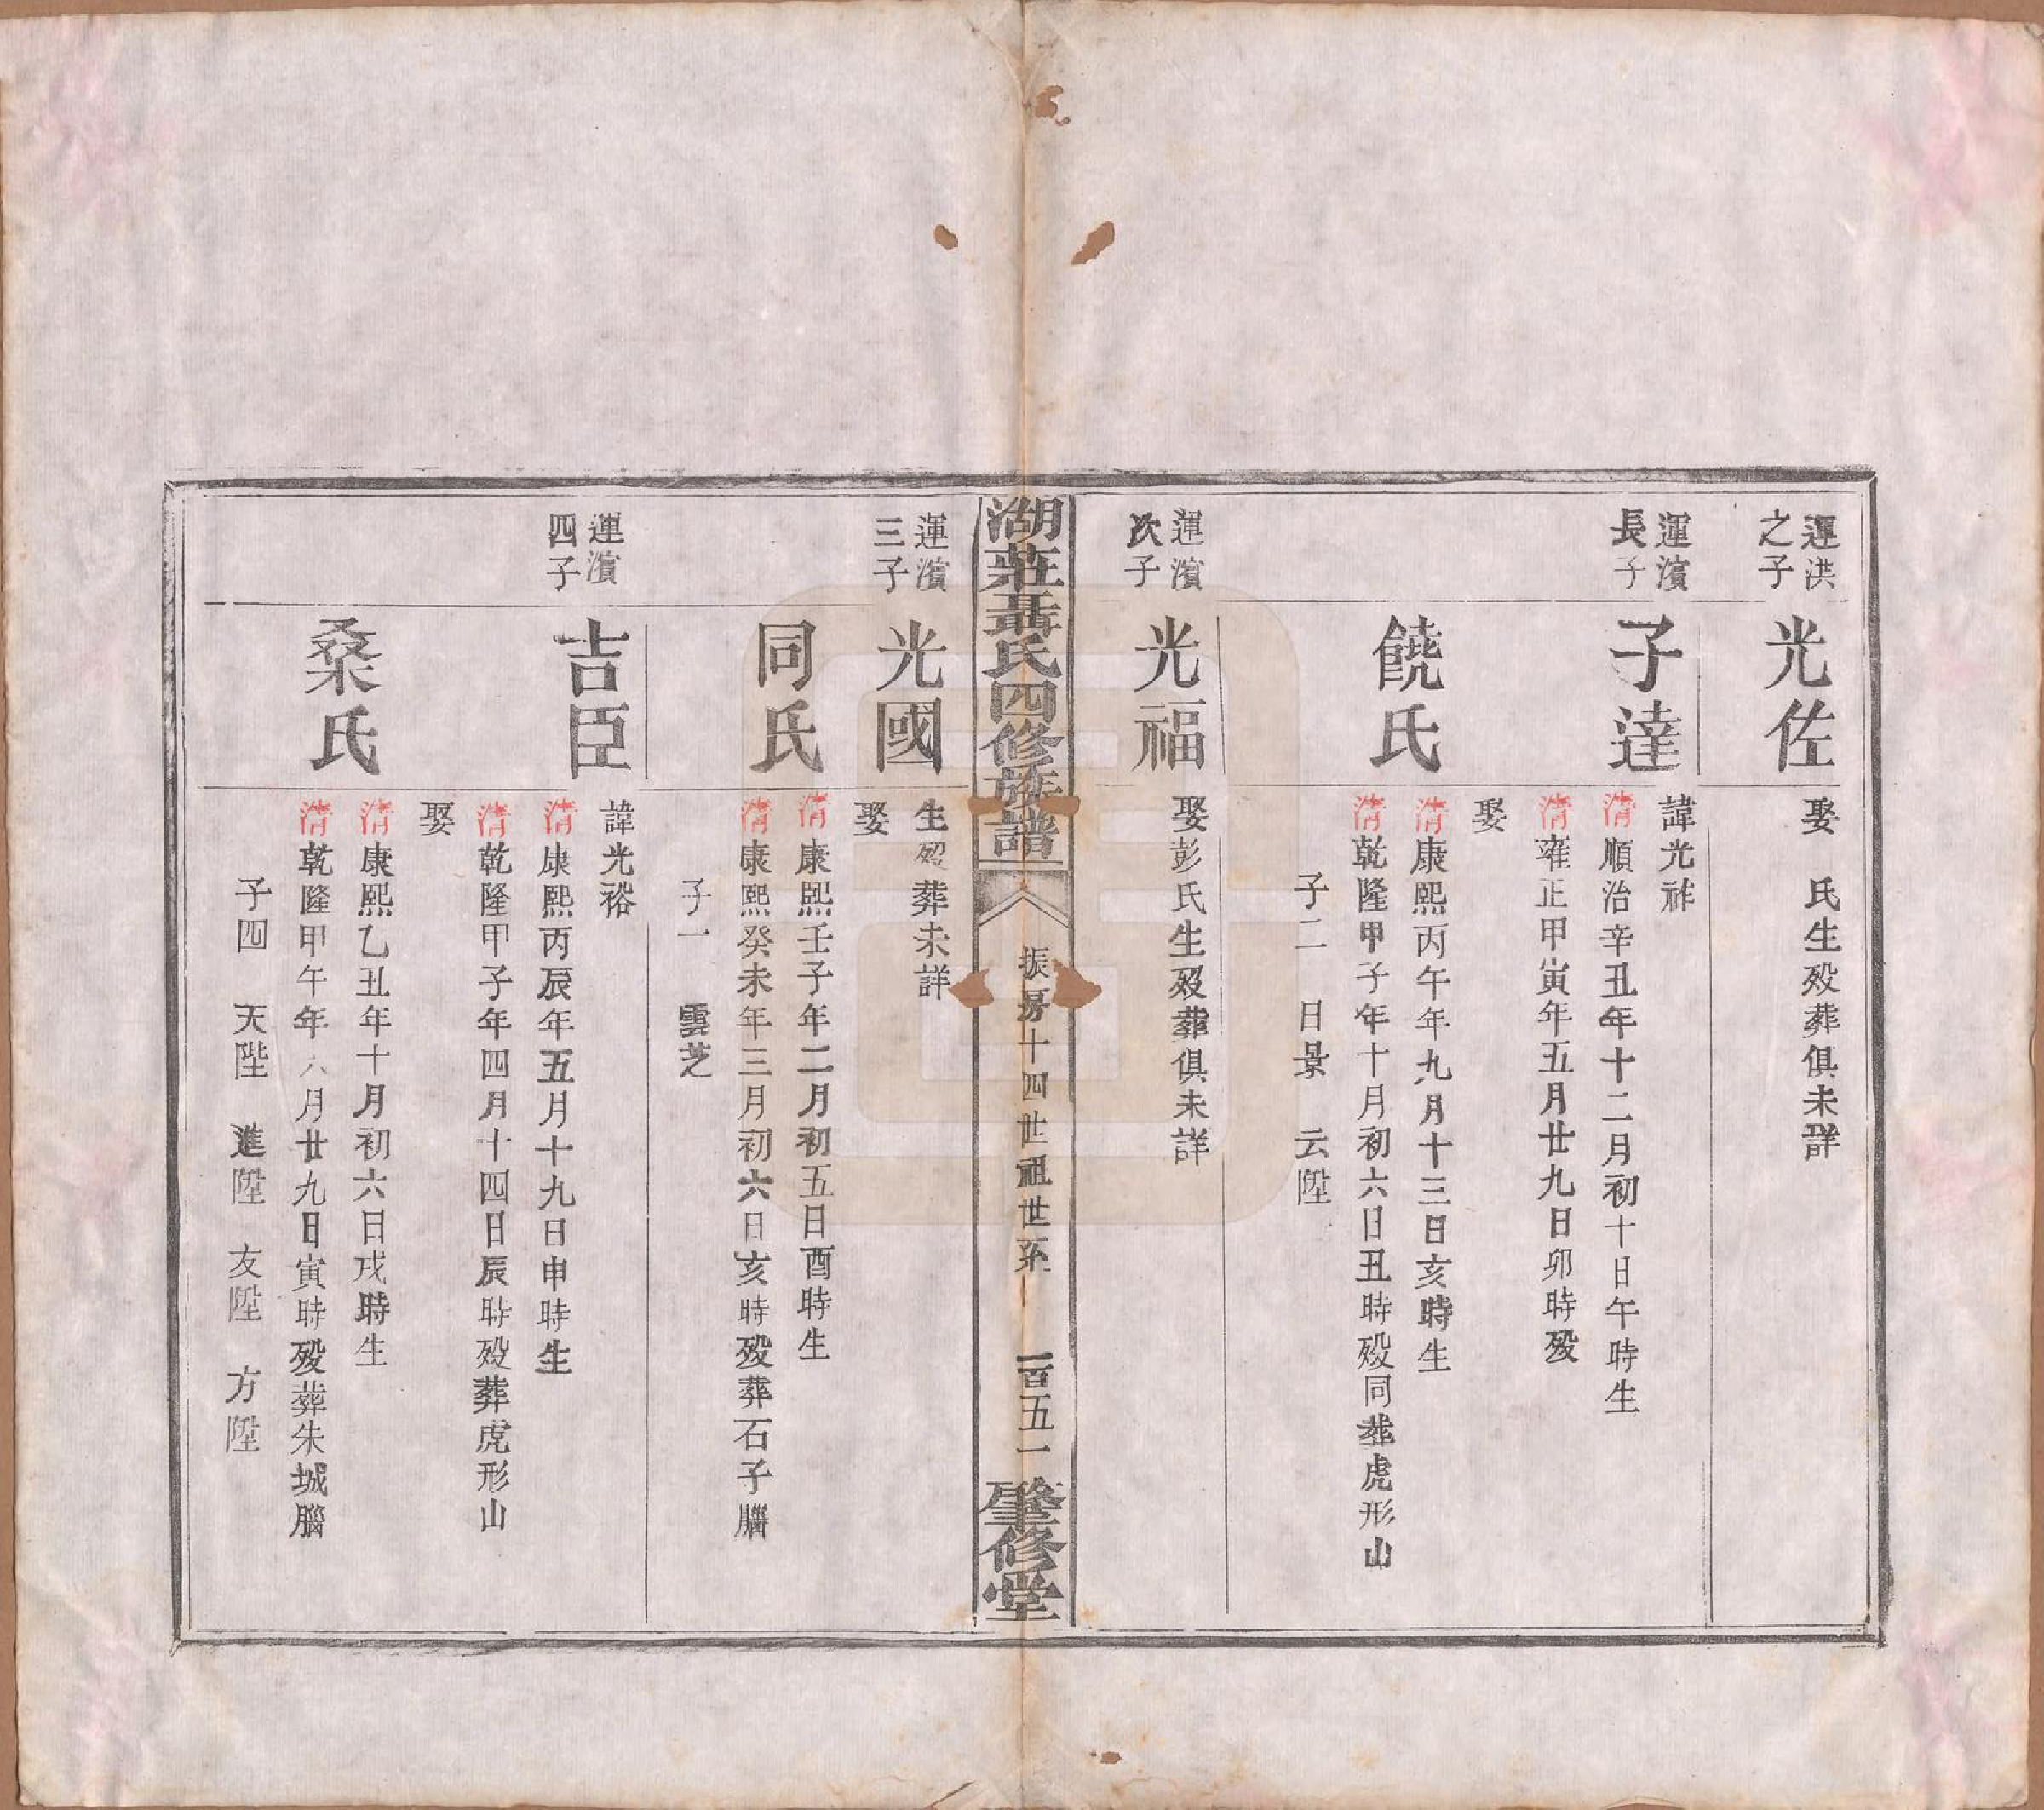 運洪
之子
光佐
娶　氏生殁葬俱未詳
運濱
長子
子達
諱光祚
清順治辛丑年十二月初十日午時生
清雍正甲寅年五月廿九日卯時殁
娶
饒氏
清康熙丙午年九月十三日亥時生
清乾隆甲子年十月初六日丑時殁同葬虎形山
子二　日景　云陞
運濱
次子
光福
娶彭氏生殁葬俱未詳
湖莊聶氏四修族譜
振房十四世祖世系
一百五一
肇修堂
運濱
三子
光國
生殁葬未詳
娶
同氏
清康熙壬子年二月初五日酉時生
清康熙癸未年三月初六日亥時殁葬石子腦
子一　雲芝
運濱
四子
吉臣
諱光裕
清康熙丙辰年五月十九日申時生
清乾隆甲子年四月十四日辰時殁葬虎形山
娶
桑氏
清康熙乙丑年十月初六日戌時生
清乾隆甲午年六月廿九日寅時殁葬朱城腦
子四　天陛　進陞　友陞　方陞